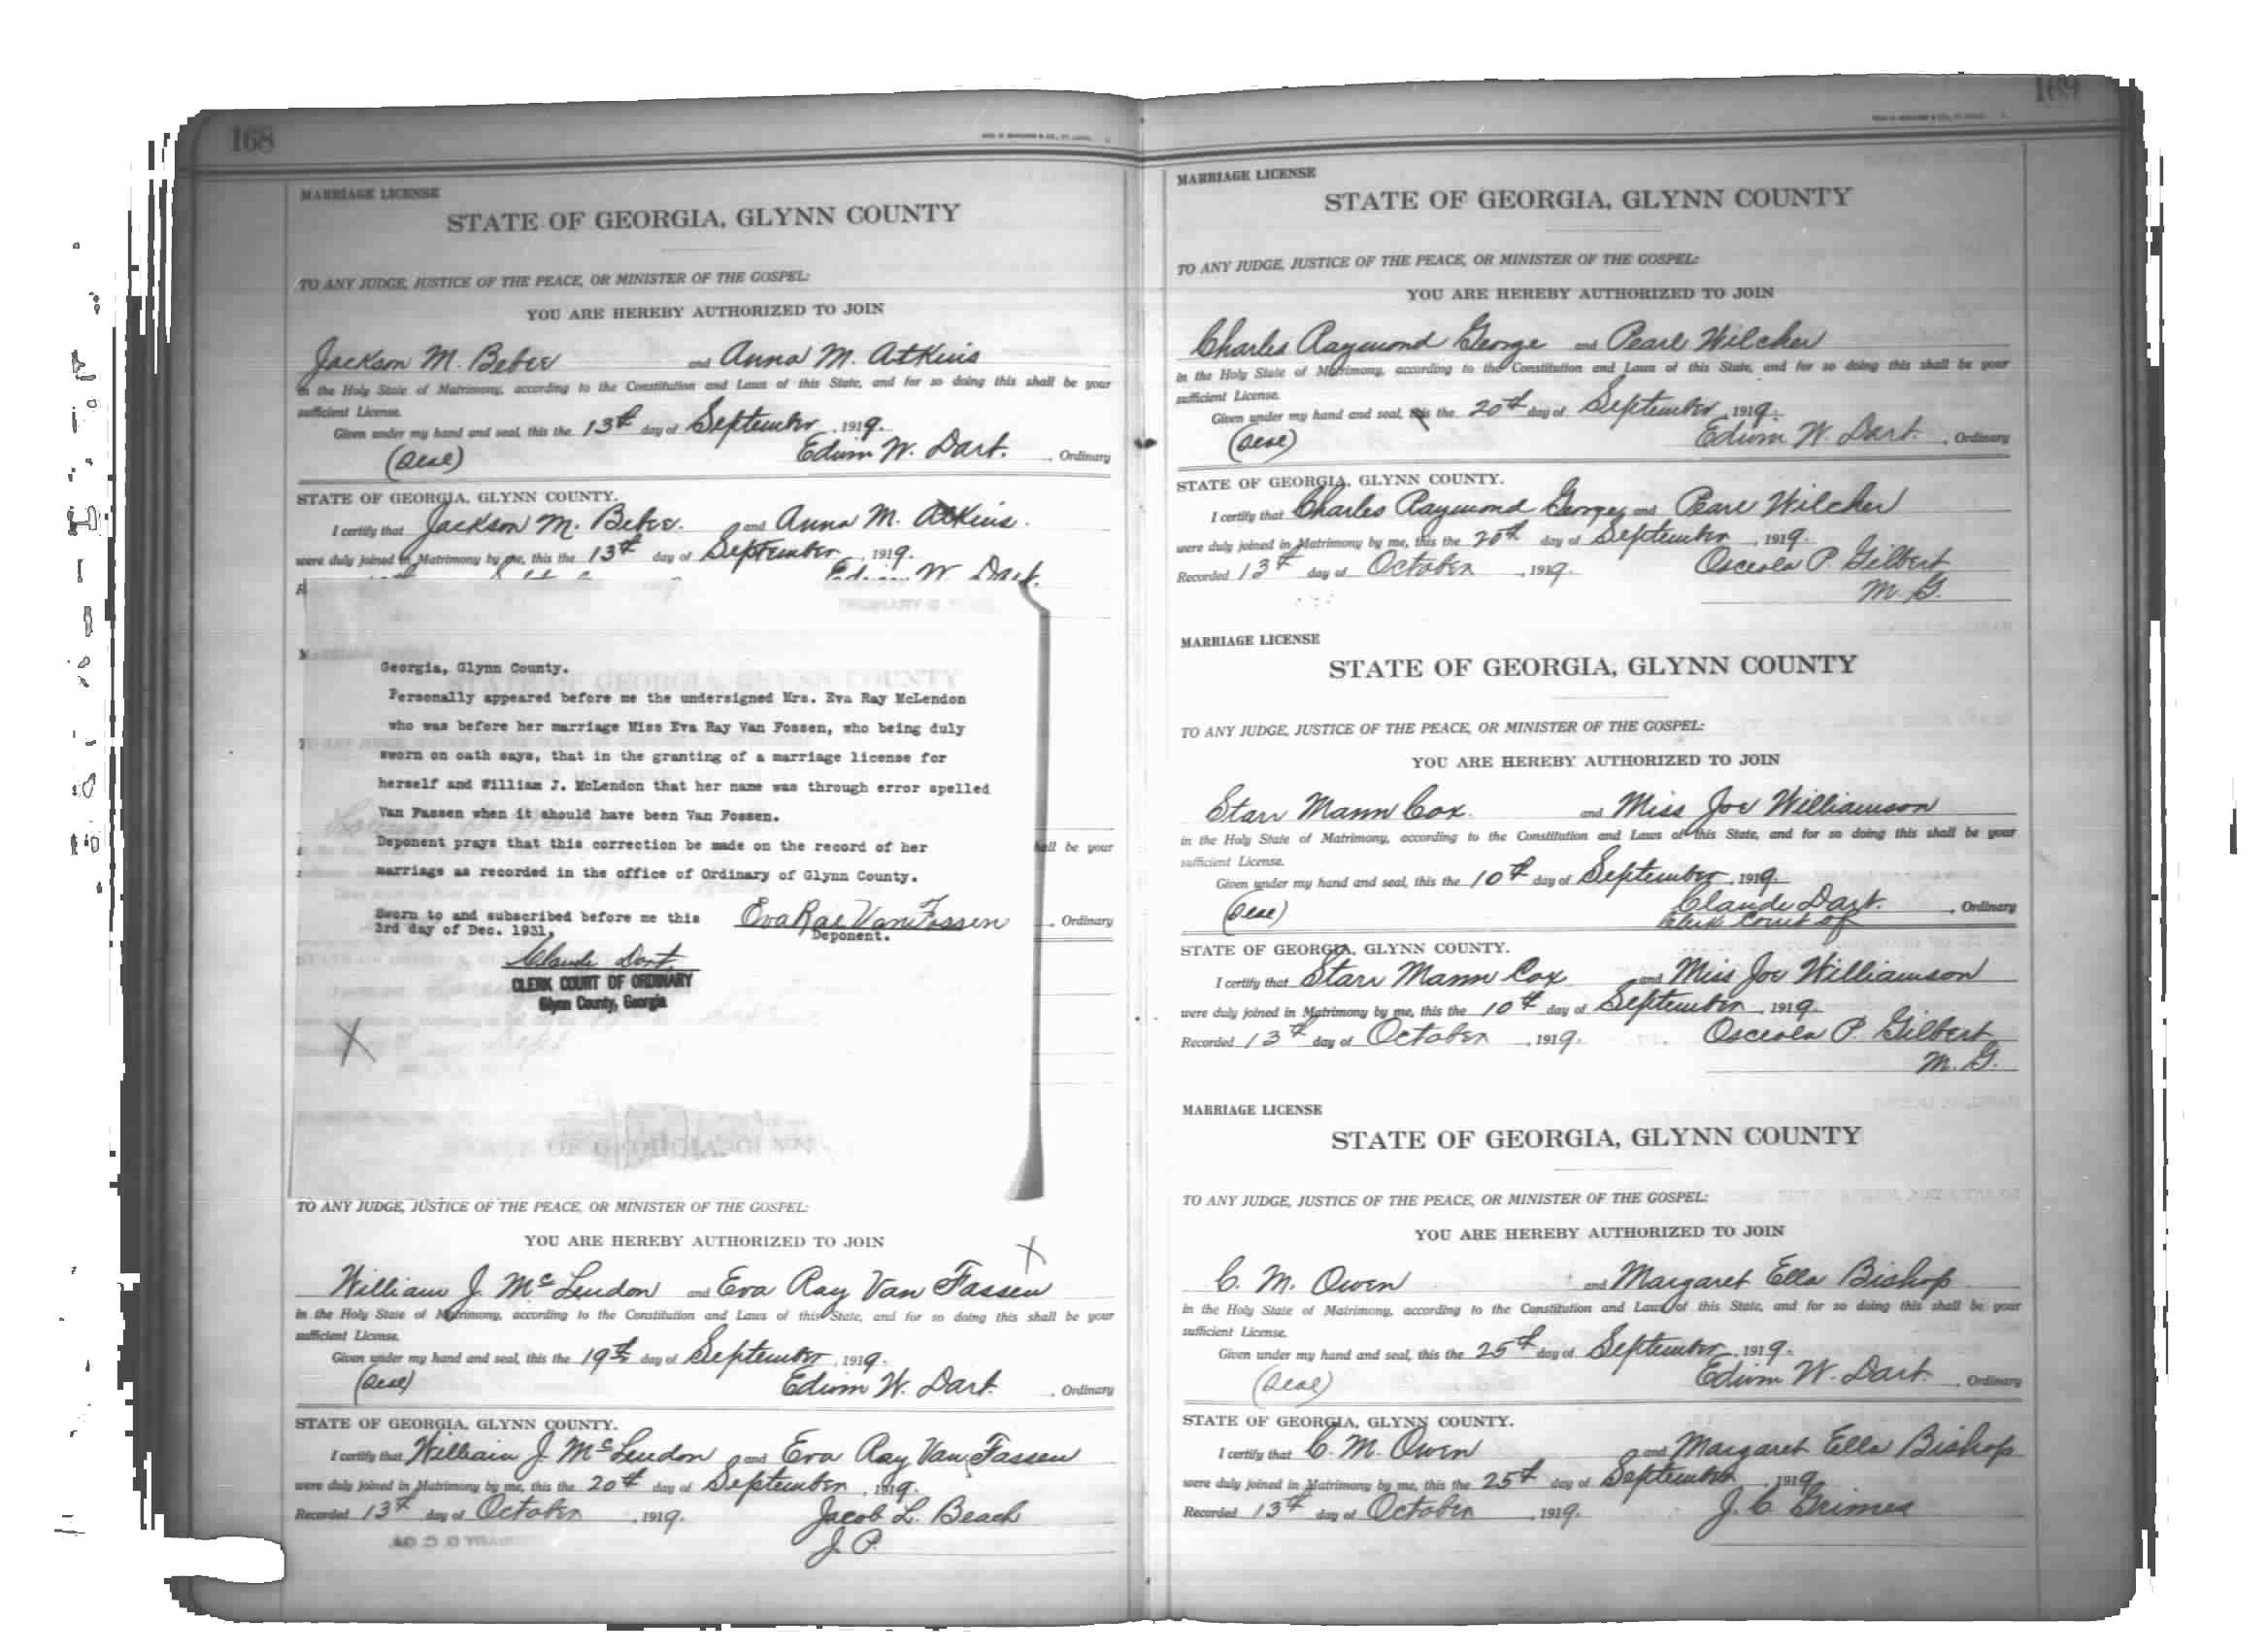 168
MARRIAGE LICENSE
STATE OF GEORGIA, GLYNN COUNTY
TO ANY JUDGE, JUSTICE OF THE PEACE, OR MINISTER OF THE GOSPEL:
YOU ARE HEREBY AUTHORIZED TO JOIN
Jackson M. Beber and Anna M. Atkins
in the Holy State of Matrimony, according to the Constitution and Laws of this State, and for so doing this shall be your
sufficient License.
Given under my hand and seal, this the 13th day of September, 1919.
(Seal) Edwin W. Dart. , Ordinary
STATE OF GEORGIA, GLYNN COUNTY.
I certify that Jackson M. Beber. and Anna M. Atkins.
were duly joined in Matrimony by me, this the 13th day of September, 1919.
Edwin W. Dart.
Georgia, Glynn County.
Personally appeared before me the undersigned Mrs. Eva Ray McLendon
who was before her marriage Miss Eva Ray Van Fossen, who being duly
sworn on oath says, that in the granting of a marriage license for
herself and William J. McLendon that her name was through error spelled
Van Fassen when it should have been Van Fossen.
Deponent prays that this correction be made on the record of her
shall be your
marriage as recorded in the office of Ordinary of Glynn County.
Sworn to and subscribed before me this Eva Rae Van Fossen , Ordinary
3rd day of Dec. 1931. Deponent.
Claude Dart
CLERK COURT OF ORDINARY
Glynn County, Georgia
X
TO ANY JUDGE, JUSTICE OF THE PEACE, OR MINISTER OF THE GOSPEL:
YOU ARE HEREBY AUTHORIZED TO JOIN X
William J. McLendon and Eva Ray Van Fassen
in the Holy State of Matrimony, according to the Constitution and Laws of this State, and for so doing this shall be your
sufficient License.
Given under my hand and seal, this the 19th day of September, 1919.
(Seal) Edwin W. Dart. , Ordinary
STATE OF GEORGIA, GLYNN COUNTY.
I certify that William J. McLendon and Eva Ray Van Fassen
were duly joined in Matrimony by me, this the 20th day of September, 1919.
Recorded 13th day of October, 1919. Jacob L. Beach
J. P.
169
MARRIAGE LICENSE
STATE OF GEORGIA, GLYNN COUNTY
TO ANY JUDGE, JUSTICE OF THE PEACE, OR MINISTER OF THE GOSPEL:
YOU ARE HEREBY AUTHORIZED TO JOIN
Charles Raymond George and Pearl Wilcher
in the Holy State of Matrimony, according to the Constitution and Laws of this State, and for so doing this shall be your
sufficient License.
Given under my hand and seal, this the 20th day of September, 1919.
(Seal) Edwin W. Dart. , Ordinary
STATE OF GEORGIA, GLYNN COUNTY.
I certify that Charles Raymond George and Pearl Wilcher
were duly joined in Matrimony by me, this the 20th day of September, 1919.
Recorded 13th day of October, 1919. Osceola P. Gilbert
M. G.
MARRIAGE LICENSE
STATE OF GEORGIA, GLYNN COUNTY
TO ANY JUDGE, JUSTICE OF THE PEACE, OR MINISTER OF THE GOSPEL:
YOU ARE HEREBY AUTHORIZED TO JOIN
Starr Mann Cox. and Miss Joe Williamson
in the Holy State of Matrimony, according to the Constitution and Laws of this State, and for so doing this shall be your
sufficient License.
Given under my hand and seal, this the 10th day of September, 1919.
(Seal) Claude Dart. , Ordinary
Clerk Court of
STATE OF GEORGIA, GLYNN COUNTY.
I certify that Starr Mann Cox and Miss Joe Williamson
were duly joined in Matrimony by me, this the 10th day of September, 1919.
Recorded 13th day of October, 1919. Osceola P. Gilbert
M. G.
MARRIAGE LICENSE
STATE OF GEORGIA, GLYNN COUNTY
TO ANY JUDGE, JUSTICE OF THE PEACE, OR MINISTER OF THE GOSPEL:
YOU ARE HEREBY AUTHORIZED TO JOIN
C. M. Owen and Margaret Ella Bishop
in the Holy State of Matrimony, according to the Constitution and Laws of this State, and for so doing this shall be your
sufficient License.
Given under my hand and seal, this the 25th day of September, 1919.
(Seal) Edwin W. Dart. , Ordinary
STATE OF GEORGIA, GLYNN COUNTY.
I certify that C. M. Owen and Margaret Ella Bishop
were duly joined in Matrimony by me, this the 25th day of September, 1919.
Recorded 13th day of October, 1919. J. C. Grimes